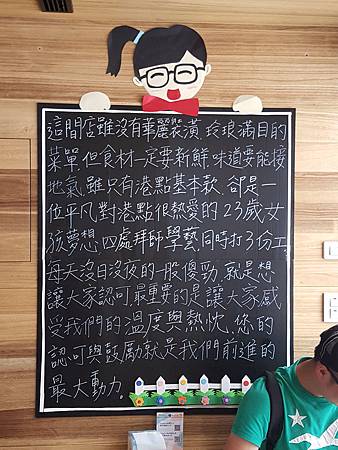 這間店雖沒有華麗裝潢 玲琅滿目的
菜單,但食材一定要新鮮 味道要能接
地氣 雖只有港點基本款 卻是一
位平凡對港點很熱愛的23歲女
孩夢想 四處拜師學藝 同時打3份工
每天沒日沒夜的一般傻勁 就是想
讓大家認可 最重要的是讓大家感
受我們的溫度與熱忱 您的
認可與鼓勵就是我們前進的
最大動力。